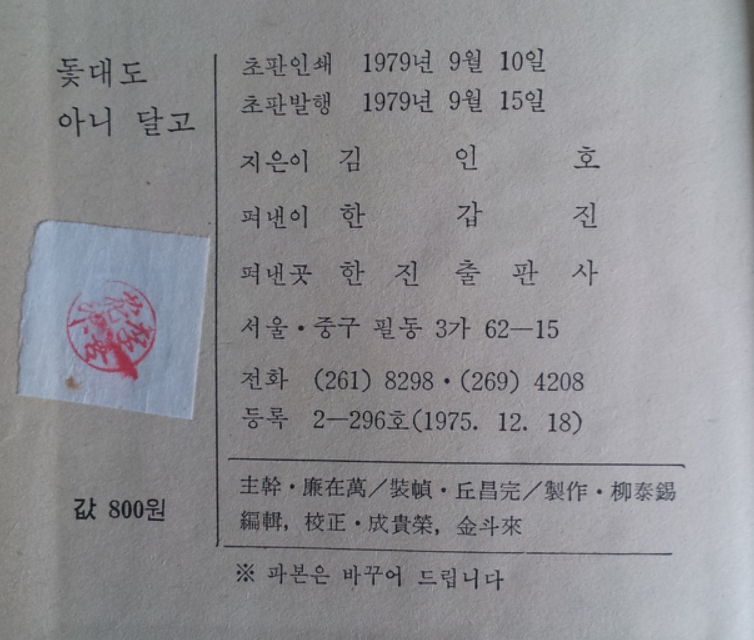 돛대도
아니 달고
초판인쇄 1979년 9월 10일
초판발행 1979년 9월 15일
지은이 김 인 호
펴낸이 한 갑 진
펴낸곳 한 진 출 판 사
서울·중구 필동 3가 62—15
전화 (261) 8298·(269) 4208
등록 2—296호(1975. 12. 18)
主幹·廉在萬／裝幀·丘昌完／製作·柳泰錫
編輯, 校正·成貴榮, 金斗來
값 800원
※ 파본은 바꾸어 드립니다